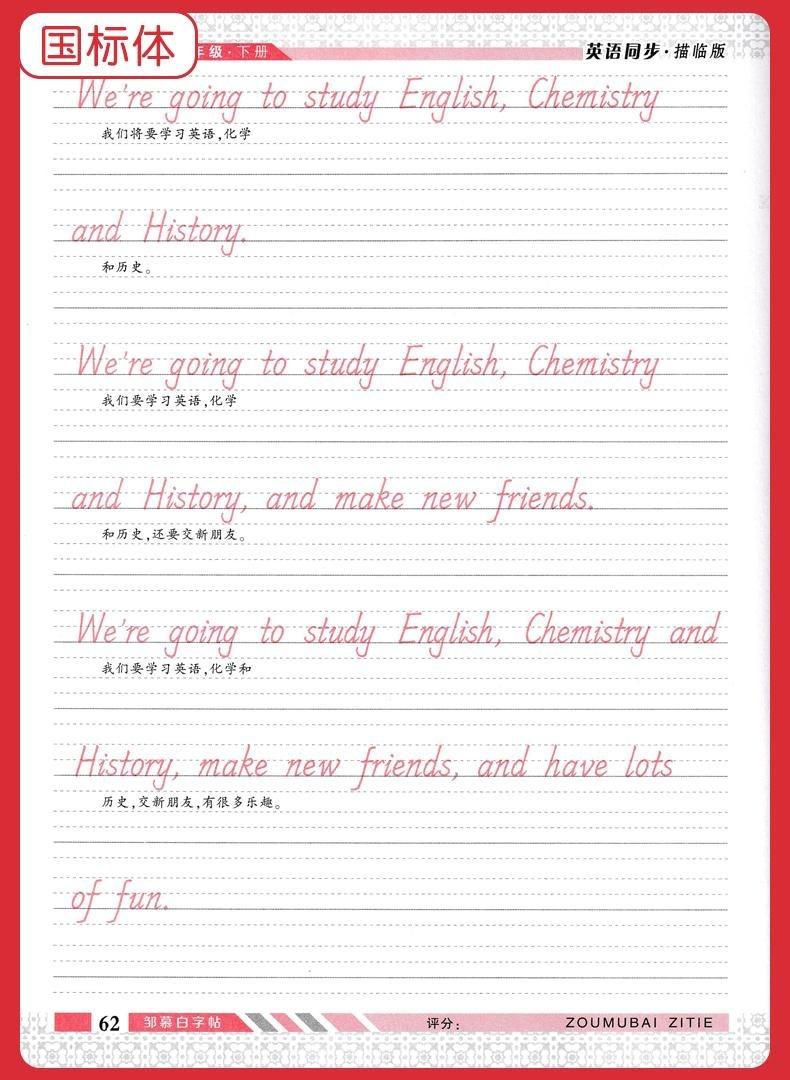 国标体
年级·下册
英语同步·描临版
We're going to study English, Chemistry
我们将要学习英语,化学
and History.
和历史。
We're going to study English, Chemistry
我们要学习英语,化学
and History, and make new friends.
和历史,还要交新朋友。
We're going to study English, Chemistry and
我们要学习英语,化学和
History, make new friends, and have lots
历史,交新朋友,有很多乐趣。
of fun.
62 邹慕白字帖 评分: ZOUMUBAI ZITIE